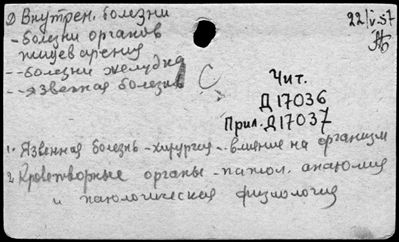 ② Внутрен. болезни
22/V.57
- болезни органов
пищеварения
-- болезни желудка
--- язвенная болезнь
Чит.
Д 17036
Прил. Д 17037
1. Язвенная болезнь - хирургия - влияние на организм
2. Кроветворные органы - патол. анатомия
и патологическая физиология